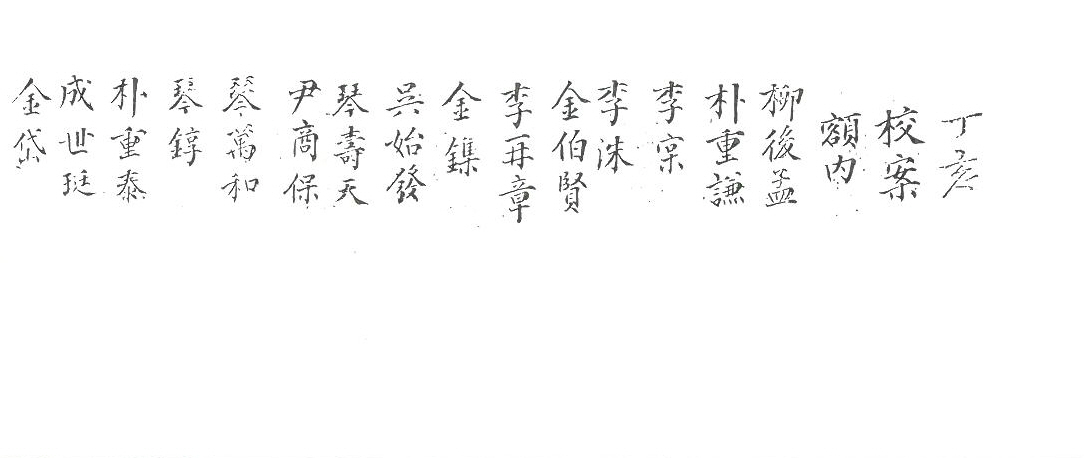 丁亥
校案
額内
柳後孟
朴重謙
李㝎
李洙
金伯賢
李再章
金鏶
吳始發
琴壽天
尹商保
琴萬和
琴錞
朴重泰
成世珽
金岱